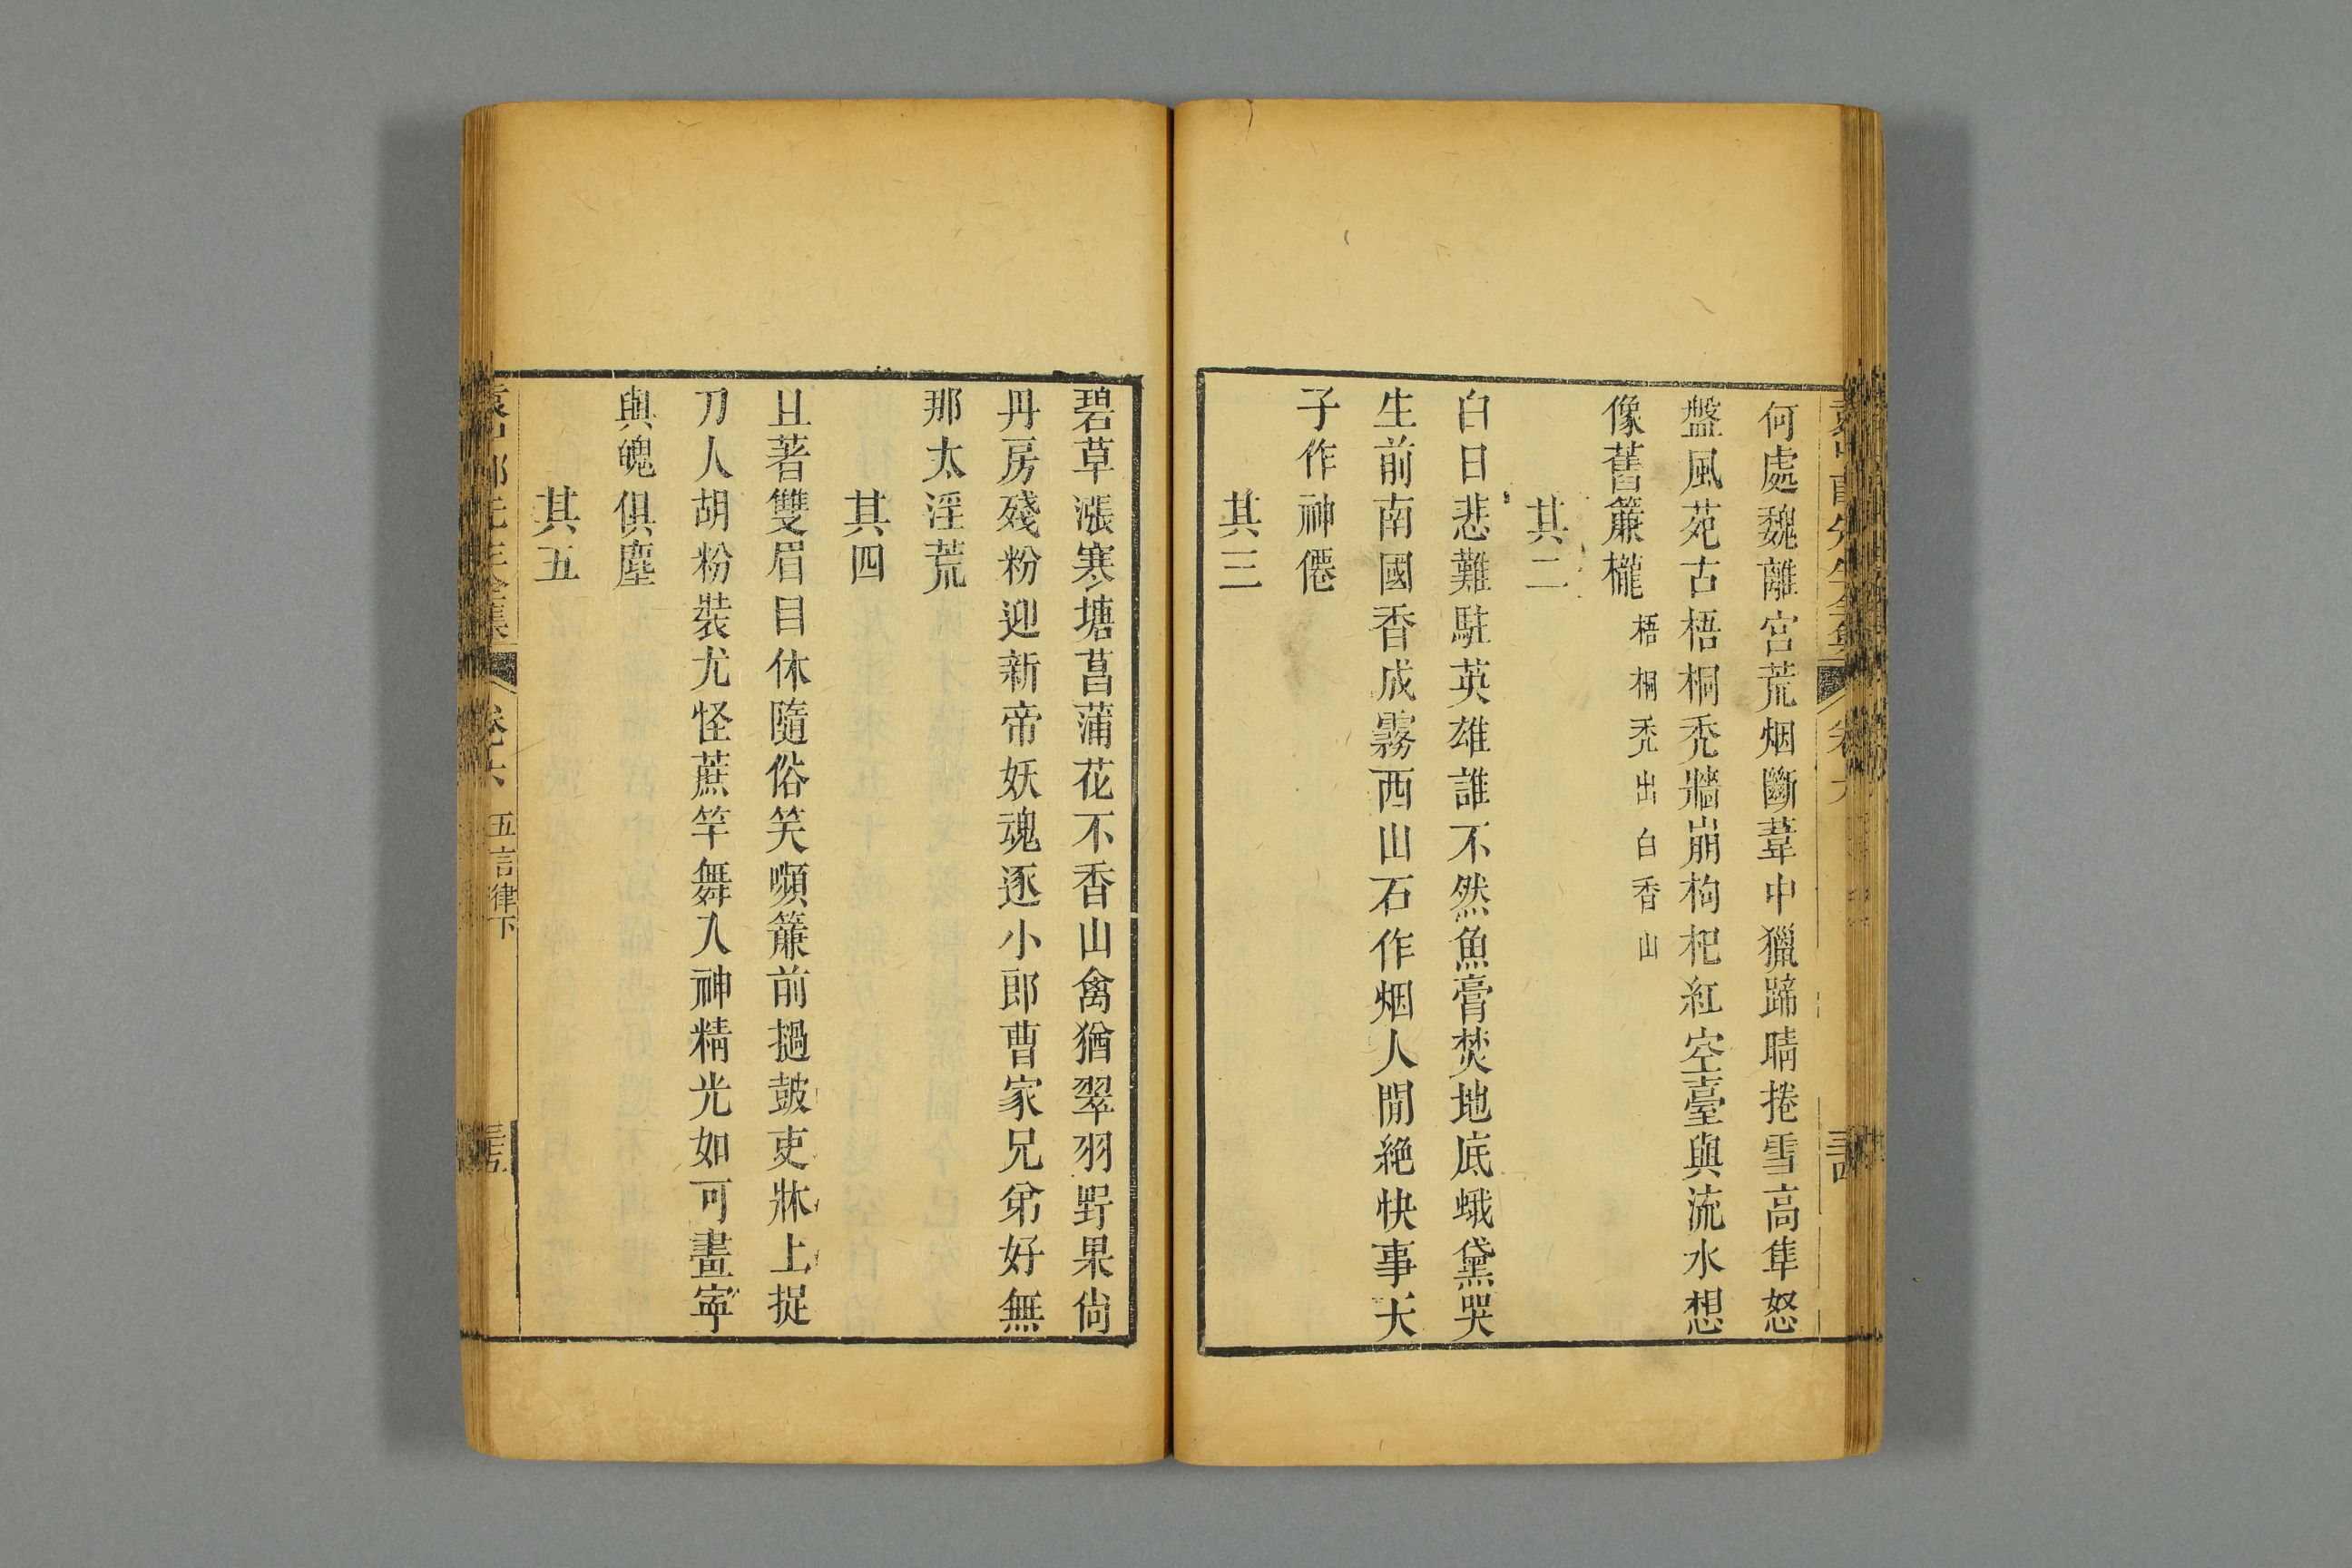 何處魏離宮荒烟斷葦中獵蹄晴捲雪高隼怒
盤風苑古梧桐禿牆崩枸杞紅空臺與流水想
像舊簾櫳梧桐禿出白香山
其二
白日悲難駐英雄誰不然魚膏焚地底蛾黛哭
生前南國香成霧西山石作烟人閒絶快事天
子作神僊
其三
碧草漲寒塘菖蒲花不香山禽猶翠羽野果尙
丹房殘粉迎新帝妖魂逐小郎曹家兄弟好無
那太淫荒
其四
且著雙眉目休隨俗笑嚬簾前撾皷吏牀上捉
刀人胡粉裝尤怪蔗竿舞入神精光如可畫寧
與魄俱塵
其五
卷六 五言律下